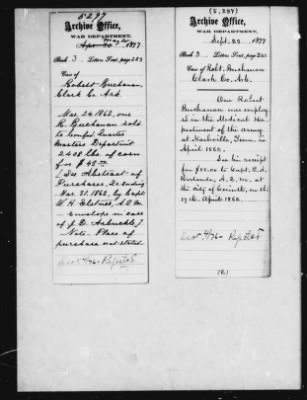 5297
Archive Office,
WAR DEPARTMENT,
1877
Book 3 Letters Sent, page 253
Case of
Robert Buchanan,
Clark Co. Ark.
Mar. 24. 1862, one
R. Buchanan sold
to Confed. Quarter
Masters Department
2408 lbs of corn
for $
(See Abstract of
Purchases, 2. ending
Mar. 31. 1862, by Capt.
W. H. A. Q. M.
envelope in case
of J. D. Arbuckle.)
Note - Place of
purchase not stated.
Rejected
(5,297)
Archive Office,
WAR DEPARTMENT,
Sept. 1877
Book 3 Letters Sent, page 253
Case of Robt. Buchanan
Clark Co. Ark.
One Robert
Buchanan was employ
ed in the Medical De
partment of the army
at Nashville, Tenn. in
April 1862.
See his receipt
for to Capt.
A. Q. M. at
the City of Corinth, on the
April 1862.
Rejected